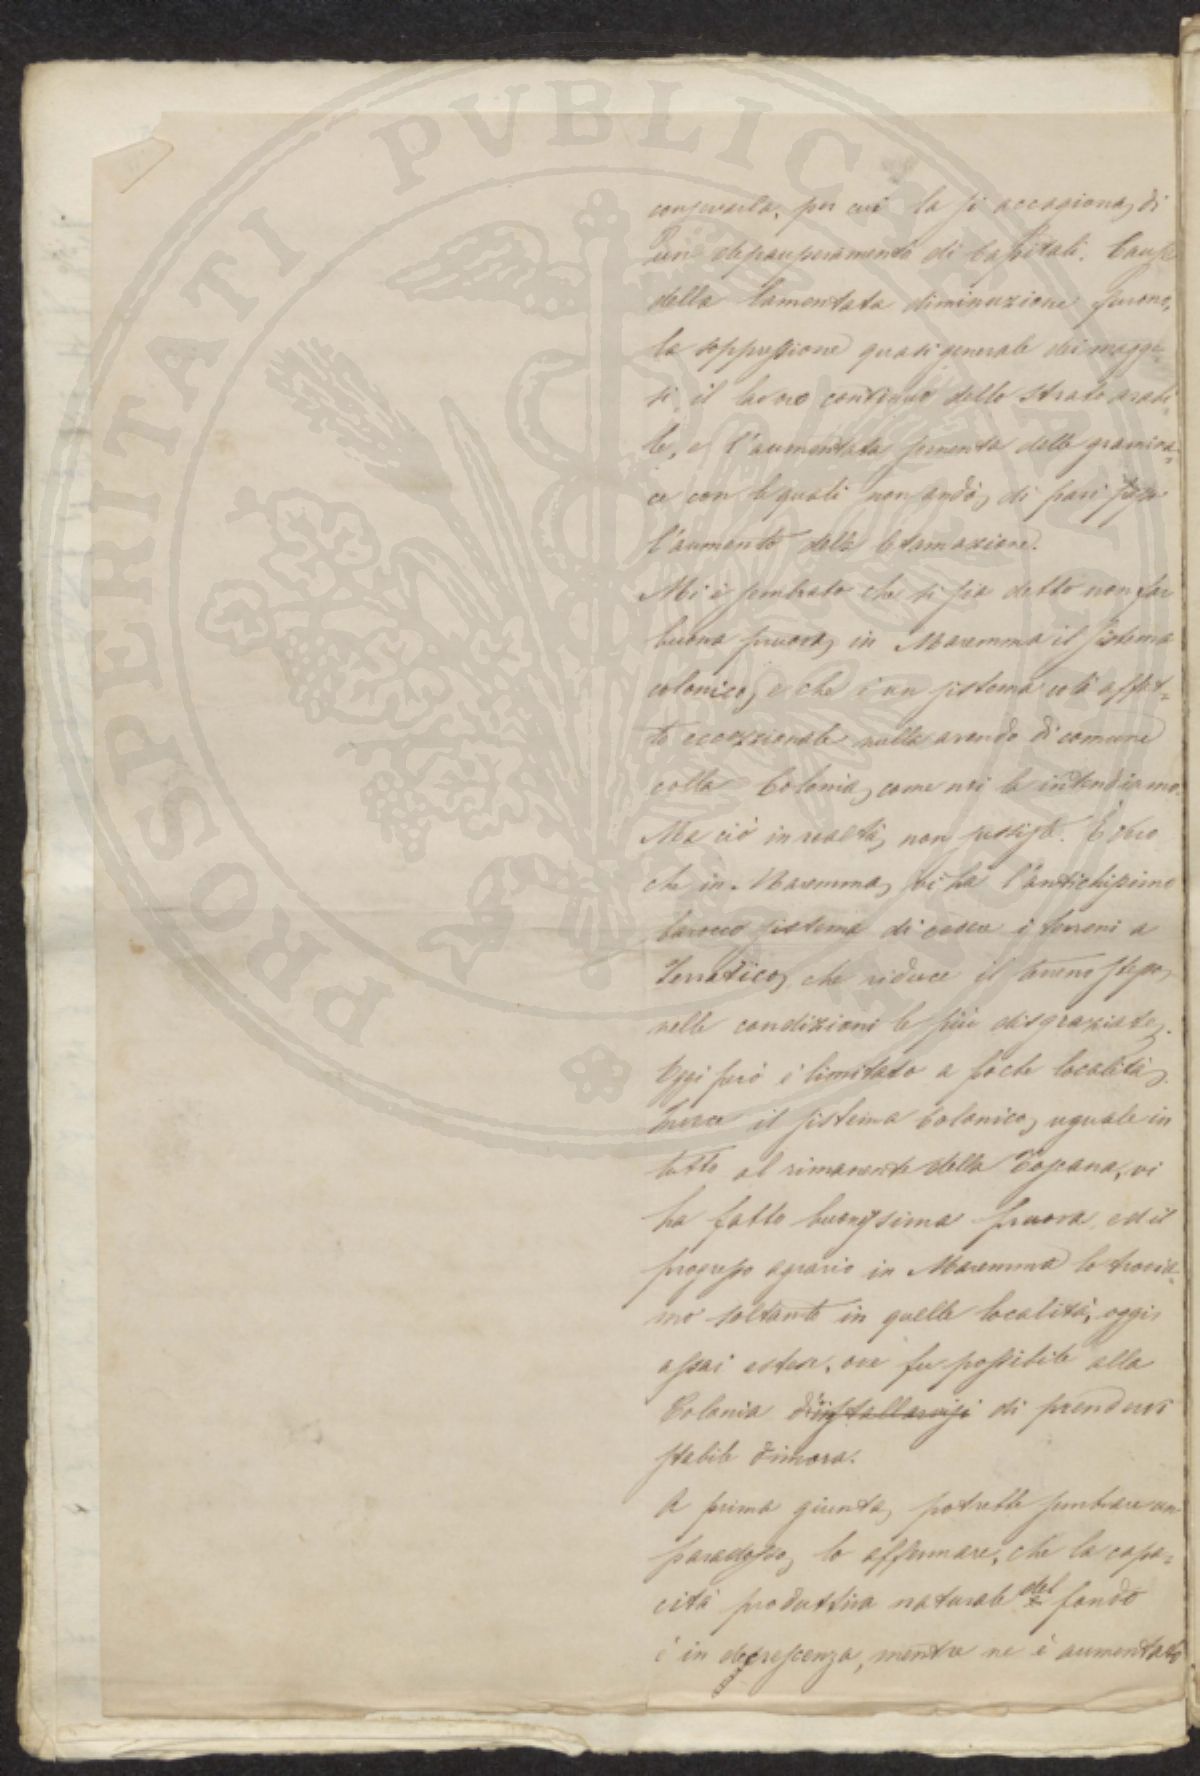 conservarla, per cui la si accagiona di
un depauperamento di Capitali. Cause
della lamentata diminuzione furono,
la soppressione quasi generale dei magge-
si, il lavoro continuo dello strato arabi-
le, e l'aumentata sementa delle gramina-
ce con le quali non andò di pari passo
l'aumento della letamazione.
Mi è sembrato che si sia detto non far
buona pruova in Maremma il sistema
colonico, e che è un sistema colà affat-
to eccezzionale nulla avendo di comune
colla Colonia, come noi la intendiamo.
Ma ciò in realtà non sussiste. È vero
che in Maremma vi ha l'antichissimo
barocco sistema di cedere i terreni a
Terratico, che riduce il terreno stesso
nelle condizioni le più disgraziate,
Oggi però è limitato a poche località,
Invece il sistema Colonico, uguale in
tutto al rimanente della Toscana, vi
ha fatto buonissima pruova, ed il
progresso agrario in Maremma lo trovia-
mo soltanto in quelle località, oggi
assai estese, ove fu possibile alla
Colonia d'installarvisi di prendervi
stabile dimora.
A prima giunta, potrebbe sembrare un
paradosso, lo affermare, che la capa-
cità produttiva naturale del fondo
è in decrescenza, mentre ne è aumentato
PROSPERITATI PVBLICAE AVGENDAE